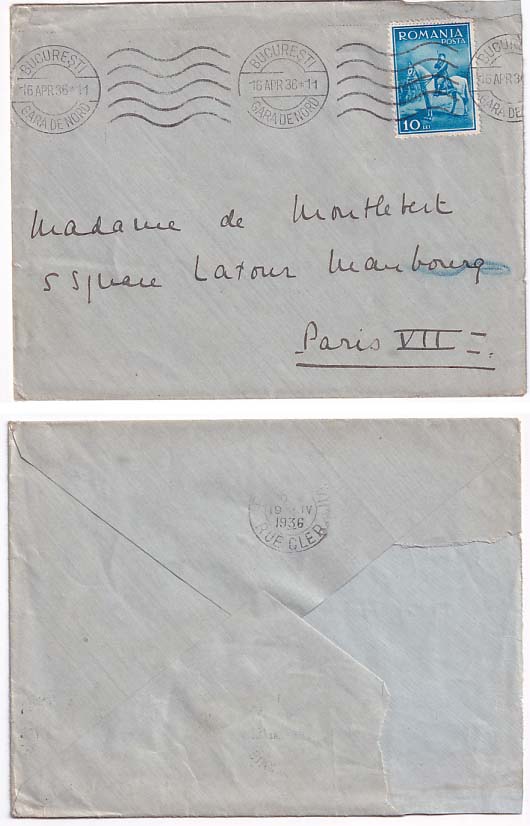 BUCUREȘTI
16 APR 36 * 11
GARA DE NORD
BUCUREȘTI
16 APR 36 * 11
GARA DE NORD
ROMANIA
POSTA
10 LEI
16 APR 36
GARA DE
Madame de Montlebert
5 Square Latour Maubourg
Paris VII
19 IV
1936
RUE CLER